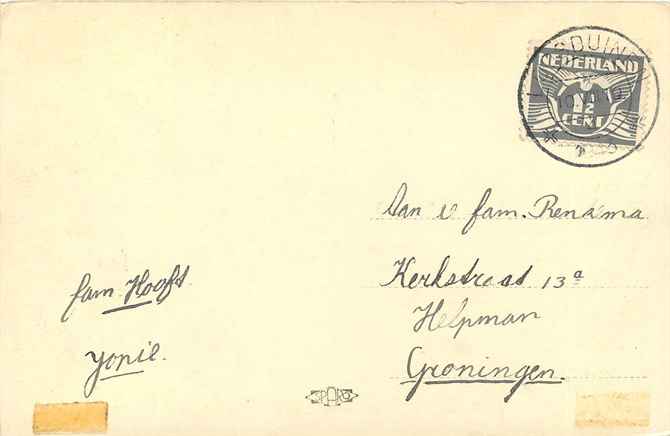 NEDERLAND
1½
CENT
Aan v fam. Renama
Kerkstraat 13a
Helpman
Groningen.
fam. Hooft
yopie.
SPARO